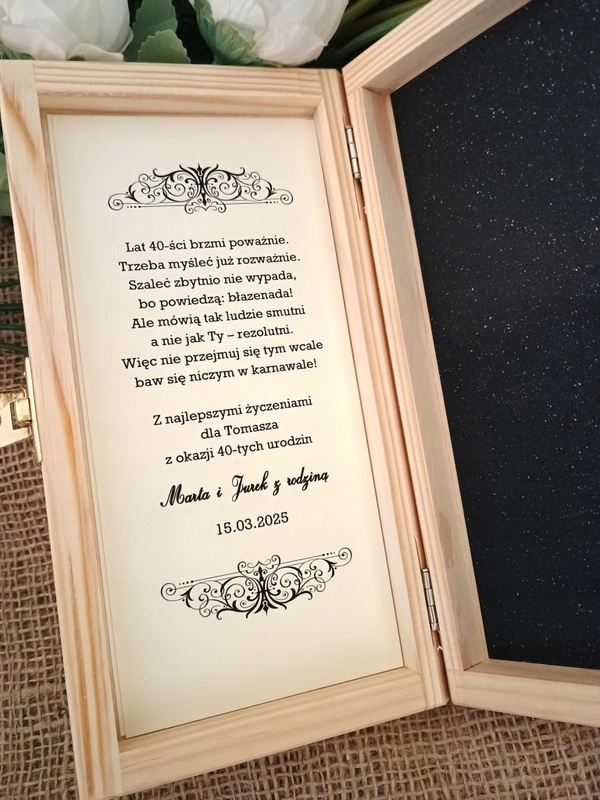 Lat 40-ści brzmi poważnie.
Trzeba myśleć już rozważnie.
Szaleć zbytnio nie wypada,
bo powiedzą: błazenada!
Ale mówią tak ludzie smutni
a nie jak Ty – rezolutni.
Więc nie przejmuj się tym wcale
baw się niczym w karnawale!
Z najlepszymi życzeniami
dla Tomasza
z okazji 40-tych urodzin
Marta i Jurek z rodziną
15.03.2025